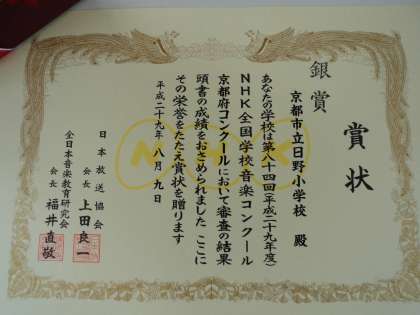 賞状
銀賞
京都市立日野小学校 殿
あなたの学校は第八十四回(平成二十九年度)
NHK全国学校音楽コンクール
京都府コンクールにおいて審査の結果
頭書の成績をおさめられました ここに
その栄誉をたたえ賞状を贈ります
平成二十九年 八月 九日
日本放送協会
会長 上田良一
全日本音楽教育研究会
会長 福井直敬
NHK